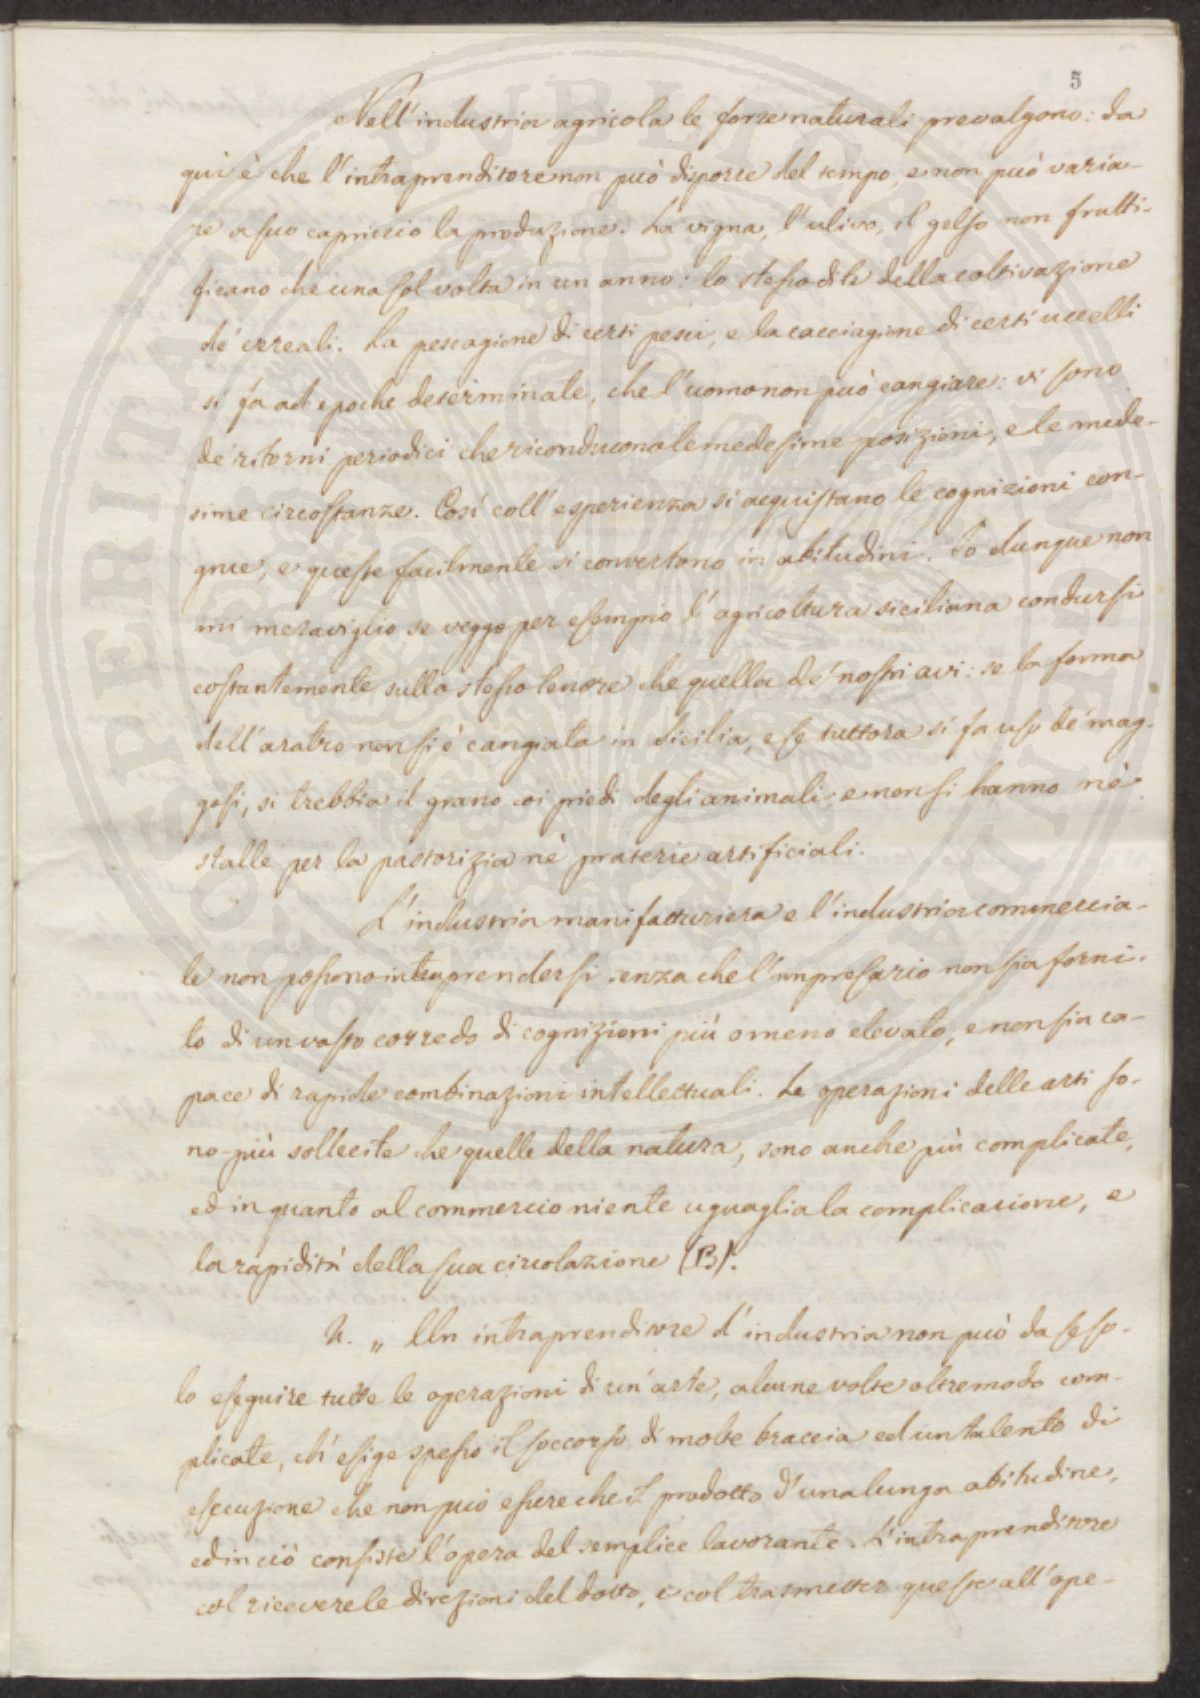 5
Nell'industria agricola le forze naturali prevalgono: da
qui è che l'intraprenditore non può disporre del tempo, e non può varia-
re a suo capriccio la produzione. La vigna, l'ulivo, il gelso non frutti-
ficano che una sol volta in un anno: lo stesso dite della coltivazione
de' cereali. La pescagione di certi pesci, e la cacciagione di certi uccelli
si fa ad epoche determinate, che l'uomo non può cangiare: vi sono
de' ritorni periodici che riconducono le medesime posizioni, e le mede-
sime circostanze. Così coll'esperienza si acquistano le cognizioni con-
grue, e queste facilmente si convertono in abitudini. Io dunque non
mi meraviglio se veggo per esempio l'agricoltura siciliana condursi
costantemente sullo stesso tenore che quella de' nostri avi: se la forma
dell'aratro non si è cangiata in Sicilia, e se tuttora si fa uso de' mag-
gesi, si trebbia il grano coi piedi degli animali, e non si hanno nè
stalle per la pastorizia nè praterie artificiali.
L'industria manifatturiera e l'industria commercia-
le non possono intraprendersi senza che l'impresario non sia forni-
to di un vasto corredo di cognizioni più o meno elevato, e non sia ca-
pace di rapide combinazioni intellettuali. Le operazioni delle arti so-
no più sollecite che quelle della natura, sono anche più complicate,
ed in quanto al commercio niente uguaglia la complicazione, e
la rapidità della sua circolazione (B).
4. „ Un intraprenditore d'industria non può da se so-
lo eseguire tutte le operazioni di un'arte, alcune volte oltremodo com-
plicate, ch'esige spesso il soccorso di molte braccia ed un talento di
esecuzione che non può essere che il prodotto d'una lunga abitudine,
ed in ciò consiste l'opera del semplice lavorante. L'intraprenditore
col ricevere le direzioni del dotto, e col trasmetter queste all'ope-